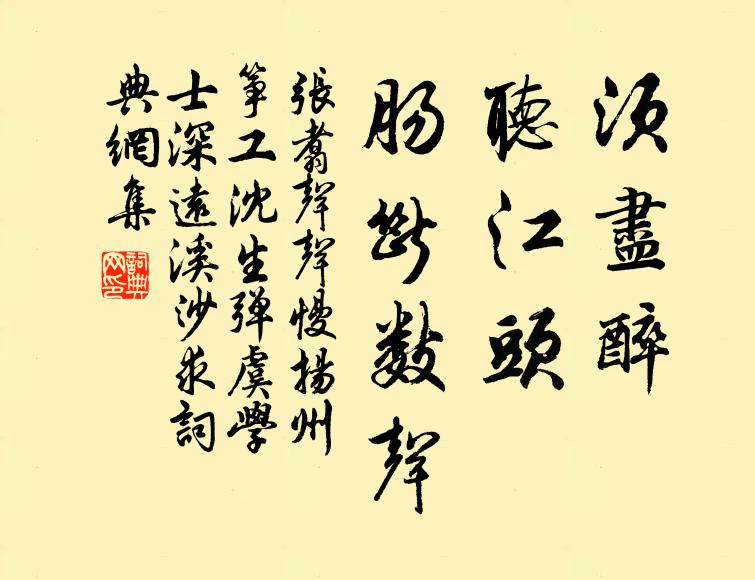 須盡醉
聽江頭
腸斷數聲
張翥聲聲慢揚州
箏工沈生彈虞學
士浣溪沙求詞
典網集
詞典
網印